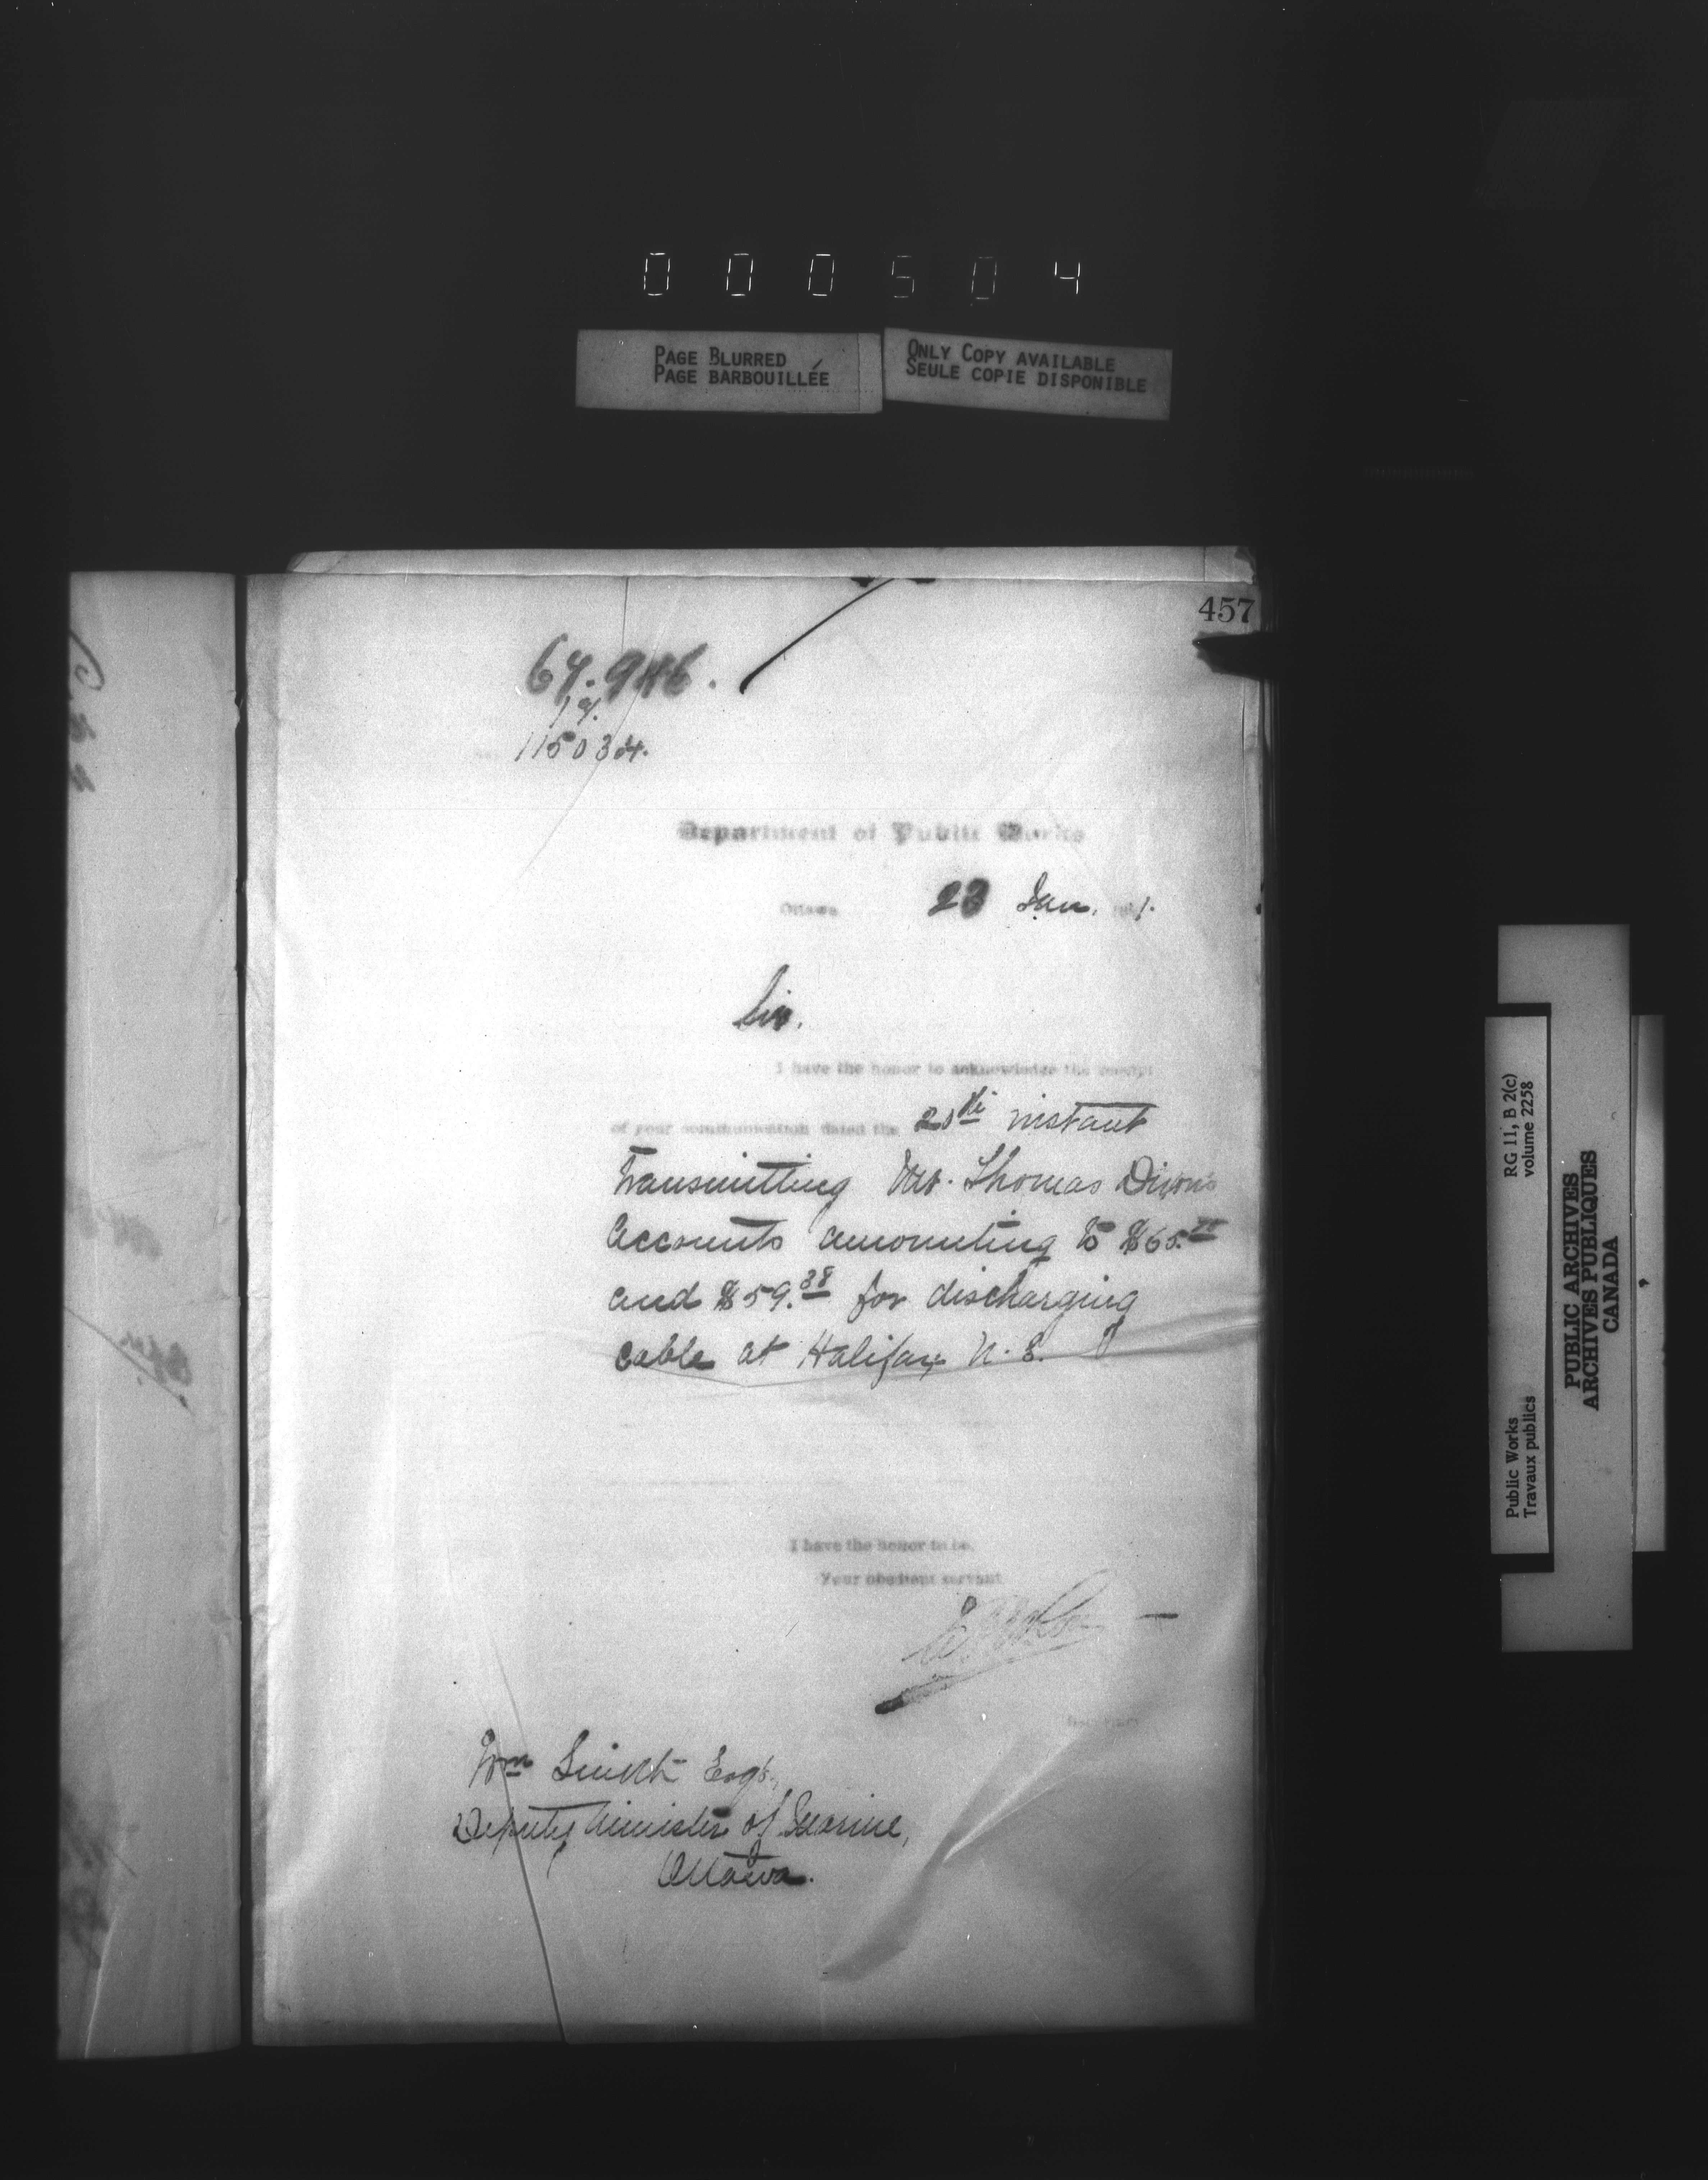 000504
PAGE BLURRED
PAGE BARBOUILLÉE
ONLY COPY AVAILABLE
SEULE COPIE DISPONIBLE
457
115034.
Department of Public Works
Ottawa 23 Jan. 1.
Sir.
I have the honor to acknowledge the receipt
of your communication dated the 20th instant
transmitting Mr. Thomas Dixon's
accounts amounting to $65.
and $59.38 for discharging
cable at Halifax N.S.
I have the honor to be,
Your obedient servant
Secretary
Wm Smith Esqr.,
Deputy Minister of Marine,
Ottawa.
RG 11, B 2(c)
volume 2258
Public Works
Travaux publics
PUBLIC ARCHIVES
ARCHIVES PUBLIQUES
CANADA